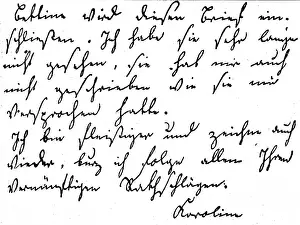 Bettine wird diesen Brief ein-
schließen. Ich habe sie sehr lange
nicht gesehen, sie hat mir auch
nicht geschrieben wie sie mir
versprochen hatte.
Ich bin fleißiger und zeichne auch
wieder, kurz ich folge allen Ihren
vernünftigen Rathschlägen.
Karoline